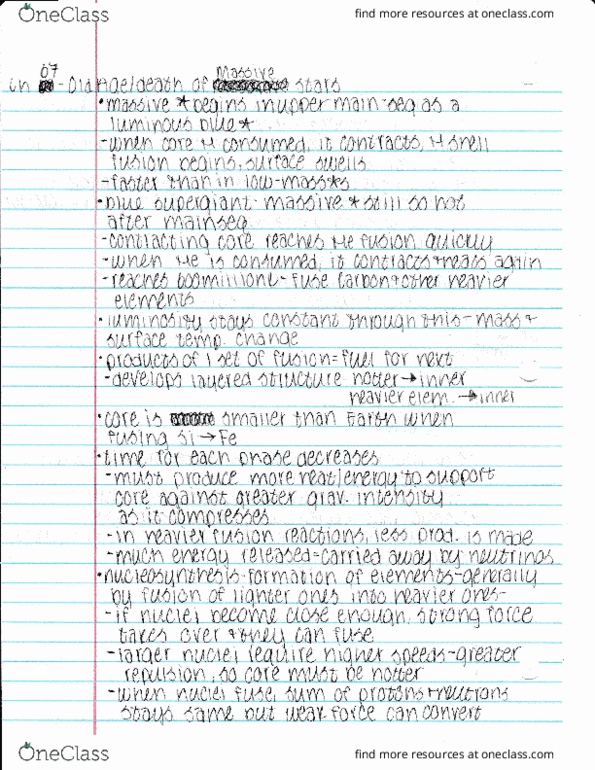 OneClass
find more resources at oneclass.com
07
Massive
Ch - Old Age/death of stars
• massive * begins in upper main-seq as a
luminous blue *
- when core H consumed, it contracts, H shell
fusion begins, surface swells
- faster than in low-mass *s
• blue supergiant - massive * still so hot
after main seq
- contracting core reaches He fusion quickly
- when He is consumed, it contracts + heats again
- reaches 600 million - fuse carbon + other heavier
elements
• luminosity stays constant through this - mass +
surface temp. change
• products of 1 set of fusion = fuel for next
- develops layered structure hotter → inner
heavier elem. → inner
• core is smaller than Earth when
fusing Si → Fe
• time for each phase decreases
- must produce more heat/energy to support
core against greater grav. intensity
as it compresses
- in heavier fusion reactions, less prod. is made
- much energy released = carried away by neutrinos
• nucleosynthesis - formation of elements - generally
by fusion of lighter ones into heavier ones -
- if nuclei become close enough, strong force
takes over + they can fuse
- larger nuclei require higher speeds - greater
repulsion, so core must be hotter
- when nuclei fuse, sum of protons + neutrons
stays same but weak force can convert
OneClass
find more resources at oneclass.com